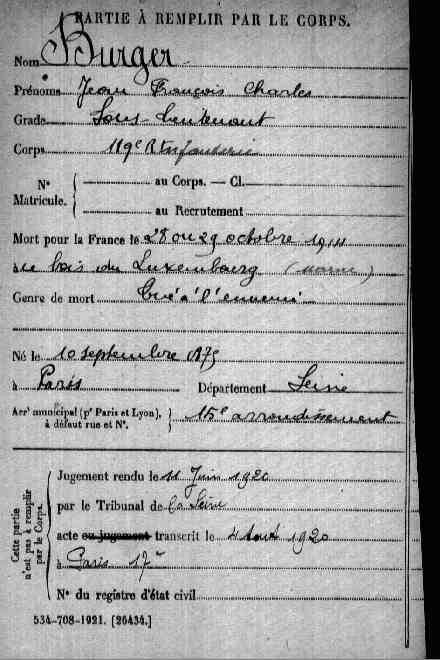 PARTIE À REMPLIR PAR LE CORPS.
Nom Burger
Prénoms Jean François Charles
Grade Sous-lieutenant
Corps 119e R. Infanterie
N° Matricule. { au Corps. — Cl.
au Recrutement
Mort pour la France le 28 ou 29 octobre 1914
au bois du Luxembourg (Marne)
Genre de mort Tué à l'ennemi
Né le 10 septembre 1875
à Paris Département Seine
Arrt municipal (pr Paris et Lyon), à défaut rue et N°. } 15e arrondissement
Cette partie n'est pas à remplir par le Corps.
Jugement rendu le 11 Juin 1920
par le Tribunal de la Seine
acte ou jugement transcrit le 4 Août 1920
à Paris 17e
N° du registre d'état civil
534-708-1921. [26434.]